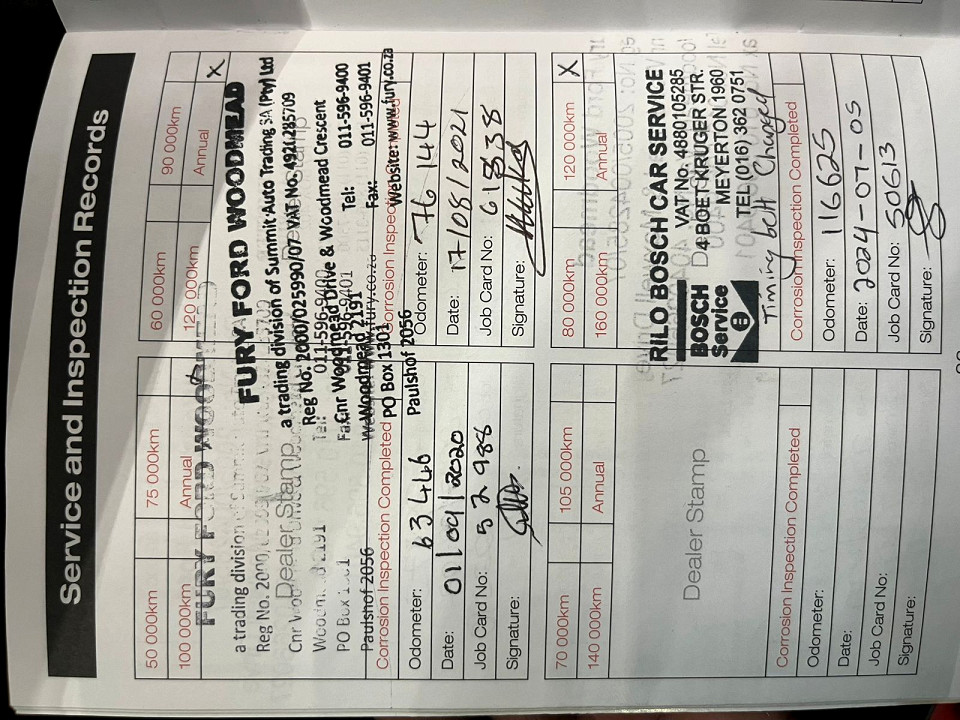 Service and Inspection Records
50 000km
75 000km
100 000km
Annual
FURY FORD WOODMEAD
a trading division of Summit
Reg No. 2000/025990/07
Dealer Stamp
Woodmead 2191
PO Box 1301
Paulshof 2056
Tel: 011-596-9400
Fax: 011-596-9401
Website: www.fury.co.za
Corrosion Inspection Completed
Odometer: 63 446
Date: 01/09/2020
Job Card No: 52 988
Signature:
60 000km
90 000km
120 000km
Annual
X
FURY FORD WOODMEAD
a trading division of Summit Auto Trading SA (Pty) Ltd
Reg No. 2000/025990/07 VAT No. 4920285709
Cnr Woodmead Drive & Woodmead Crescent
Woodmead 2191
Tel: 011-596-9400
PO Box 1301
Fax: 011-596-9401
Paulshof 2056
Website: www.fury.co.za
Corrosion Inspection
Odometer: 76 144
Date: 17/08/2021
Job Card No: 61838
Signature:
70 000km
105 000km
140 000km
Annual
Dealer Stamp
Corrosion Inspection Completed
Odometer:
Date:
Job Card No:
Signature:
80 000km
120 000km
X
160 000km
Annual
RILO BOSCH CAR SERVICE
VAT No. 4880105285
BOSCH
Service
4 BOET KRUGER STR.
MEYERTON 1960
TEL (016) 362 0751
Timing belt Changed
Corrosion Inspection Completed
Odometer: 116625
Date: 2024-07-05
Job Card No: 50613
Signature: